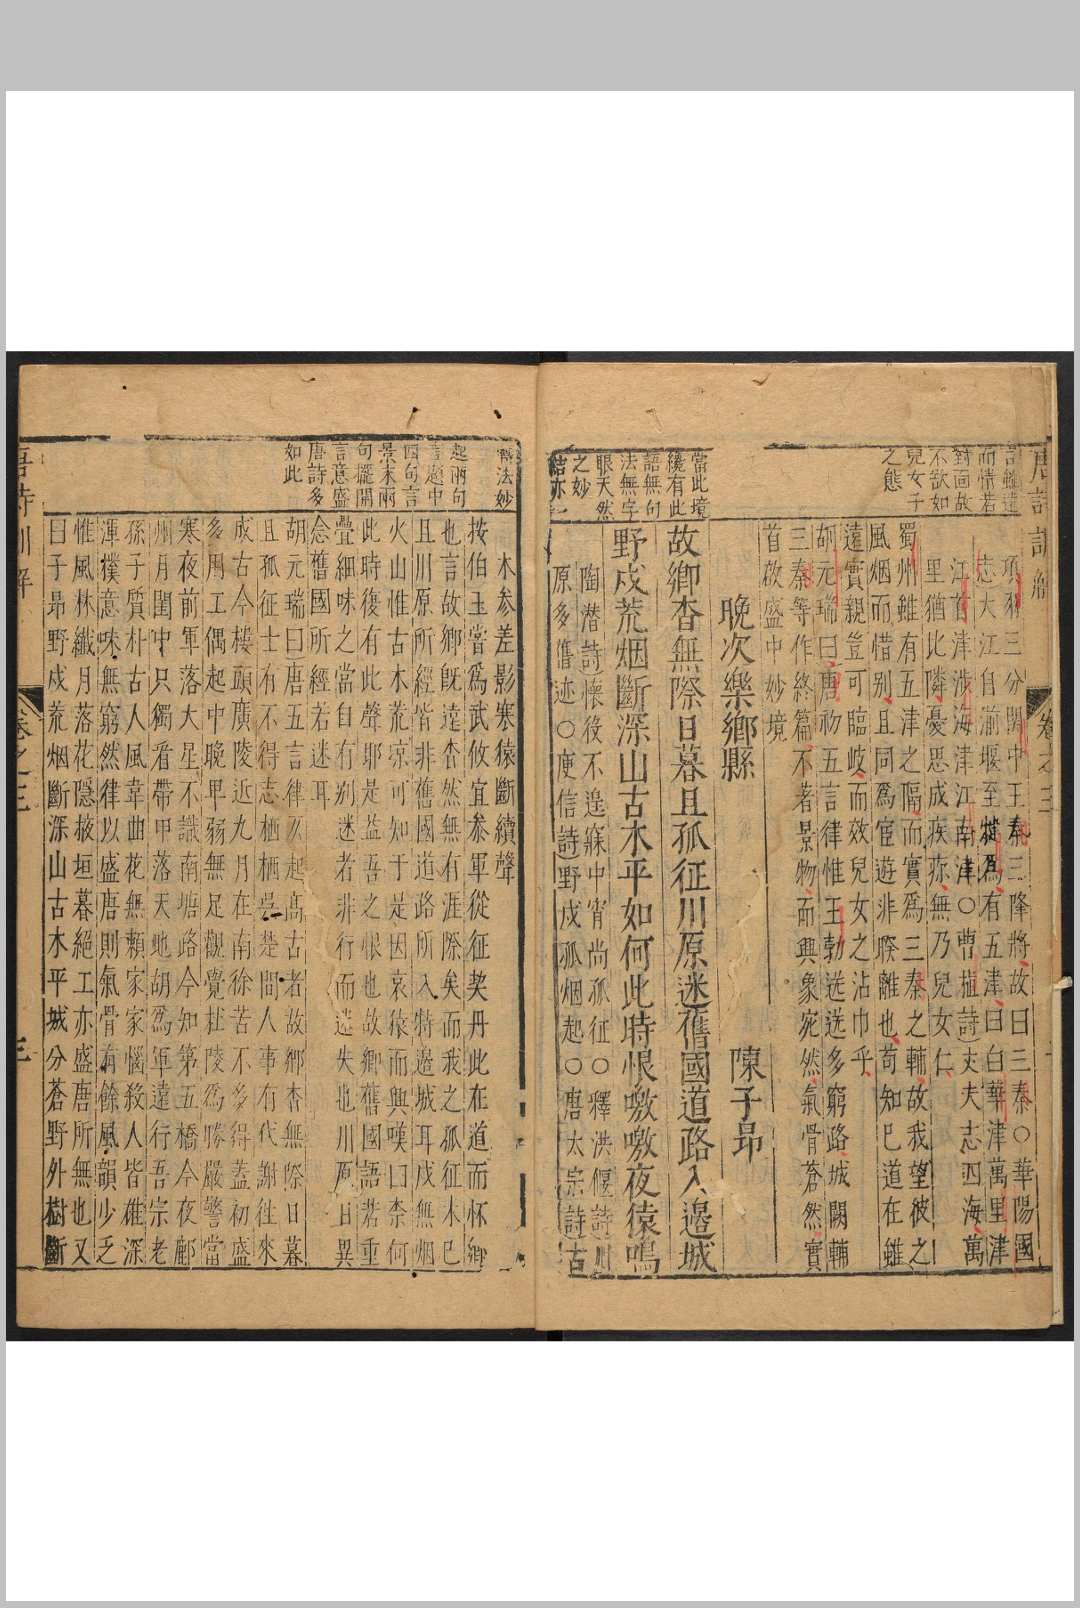 唐詩訓解
卷之三
言雖達
而情若
對面故
不欲如
兒女子
之態
項羽三分關中王秦三降將故曰三秦○華陽國
志大江自湔堰至犍爲有五津曰白華津萬里津
江首津涉海津江南津○曹植詩丈夫志四海萬
里猶比隣憂思成疾疢無乃兒女仁
蜀州雖有五津之隔而實爲三秦之輔故我望彼之
風烟而惜别且同爲宦遊非暌離也苟知巳道在雖
遠實親豈可臨岐而效兒女之沾巾乎
胡元瑞曰唐初五言律惟王勃送送多窮路城闕輔
三秦等作終篇不著景物而興象宛然氣骨蒼然實
首啟盛中妙境
晚次樂鄉縣 陳子昂
當此境
纔有此
語無句
法無字
眼天然
之妙
結亦
故鄉杳無際日暮且孤征川原迷舊國道路入邊城
野戍荒烟斷深山古木平如何此時恨噭噭夜猿鳴
陶潜詩懷役不遑寐中宵尚孤征○釋洪偃詩川
原多舊迹○庾信詩野戍孤烟起○唐太宗詩古
法妙
起兩句
言題中
四句言
景末兩
句擺開
言意盛
唐詩多
如此
木参差影寒猿斷續聲
按伯玉嘗爲武攸宜叅軍從征契丹此在道而怀鄉
也言故鄉旣遠杳然無有涯際矣而我之孤征木巳
且川原所經皆非舊國道路所入特邊城耳戍無烟
火山惟古木荒凉可知于是因哀猿而興嘆曰柰何
此時復有此聲耶是益吾之恨也故鄉舊國語若重
疊細味之當自有别迷者非行而迷失也川原日異
念舊國所經若迷耳
胡元瑞曰唐五言律久起高古者故鄉杳無際日暮
且孤征士有不得志栖栖吳楚間人事有代謝徃來
成古今樓頭廣陵近九月在南徐苦不多得蓋初盛
多用工偶起中晚卑弱無足觀覺杜陵爲勝嚴警當
寒夜前軍落大星不識南塘路今知第五橋今夜鄜
州月閨中只獨看帶甲落天地胡爲軍遠行吾宗老
孫子質朴古人風韋曲花無賴家家惱殺人皆雄深
渾撲意味無窮然律以盛唐則氣骨有餘風韻少乏
惟風林纖月落花隱掖垣暮絕工亦盛唐所無也又
曰子昂野戍荒烟斷深山古木平城分蒼野外樹斷
唐詩訓解
卷之三